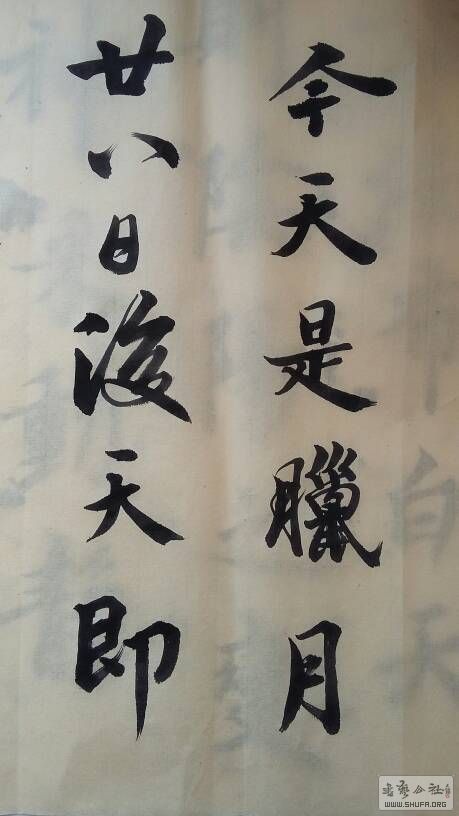 今天是臘月
廿八日後天即
白天
書藝公社
WWW.SHUFA.ORG